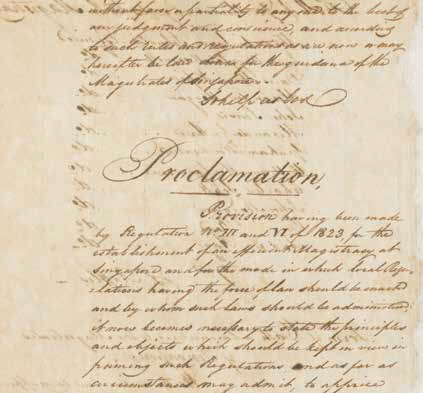 without favor or partiality to any one to the best of
my judgment and conscience, and according
to such rules and regulations as are now or may
hereafter be laid down for the guidance of the
Magistrates of Singapore.
So help me God
Proclamation,
Provision having been made
by Regulation No III and VI of 1823 for the
establishment of an efficient Magistracy at
Singapore and for the mode in which local Regu-
lations having the force of law should be enacted
and by whom such laws should be administered
it now becomes necessary to state the principles
and objects which should be kept in view in
framing such Regulations and as far as
circumstances may admit to apprize